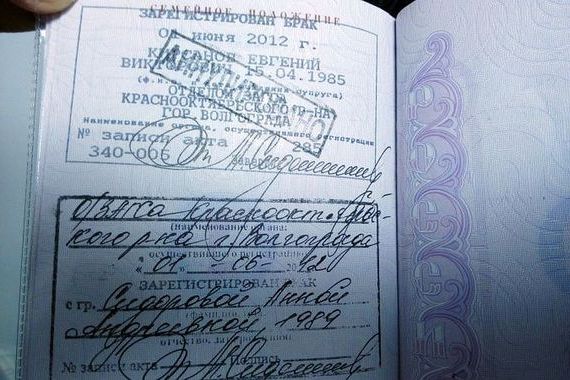 СЕМЕЙНОЕ ПОЛОЖЕНИЕ
ЗАРЕГИСТРИРОВАН БРАК
01 ИЮНЯ 2012 г.
ЕВГЕНИЙ
15.04.1985
ОТДЕЛОМ
КРАСНООКТЯБРЬСКОГО Р-НА
ГОР. ВОЛГОГРАДА
наименование органа, осуществившего регистрацию
№ записи акта 285
340-006
ОЗАГСа Краснооктябрьс-
кого р-на г. Волгограда
(наименование органа,
осуществившего регистрацию)
"01" 06 2012
ЗАРЕГИСТРИРОВАН БРАК
с гр. Сидоровой Анной
Андреевной, 1989
отчество, дата рождения)
№ записи акта Подпись